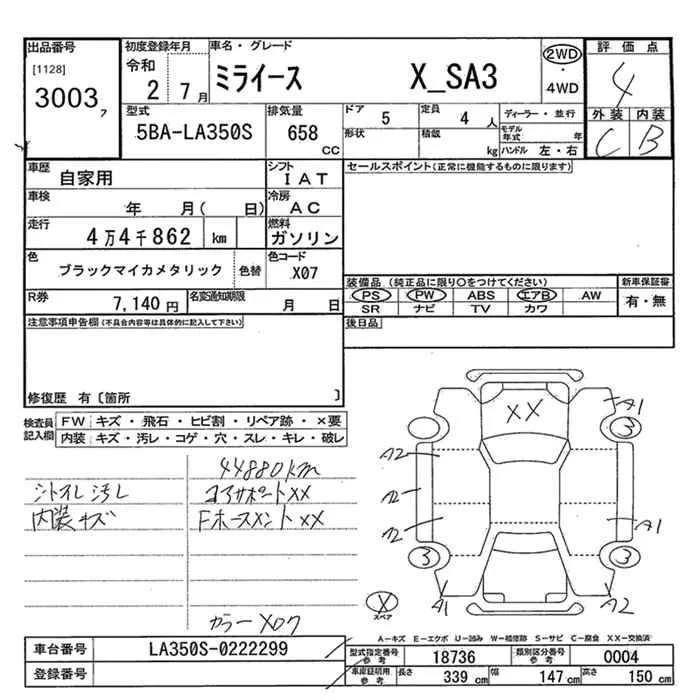 出品番号
[1128]
3003 フ
初度登録年月
令和
2 7月
車名・グレード
ミライース X_SA3
2WD
・
4WD
評価点
4
外装 内装
C B
型式
5BA-LA350S
排気量
658
CC
ドア
5
定員
4 人
形状
積載
kg
ディーラー・並行
モデル年式 年
ハンドル 左・右
車歴
自家用
シフト
IAT
車検
年 月( 日)
冷房
AC
走行
4万4千862 km
燃料
ガソリン
色
ブラックマイカメタリック
色替
色コード
X07
R券
7,140 円
名変通知期限
月 日
セールスポイント(正常に機能するものに限ります)
装備品 (純正品に限り○をつけてください)
PS PW ABS エアB AW
SR ナビ TV カワ
新車保証書
有・無
後日品
注意事項申告欄(不具合内容等は具体的に記入して下さい)
修復歴 有〔箇所 〕
検査員
記入欄
FW キズ・飛石・ヒビ割・リペア跡・×要
内装 キズ・汚レ・コゲ・穴・スレ・キレ・破レ
44880km
シートスレ汚レ
コアサポートXX
内装キズ
FホースメントXX
カラーX07
XX
A1
3
A2
3
A2
A2
A1
3
3
A1
A2
X
スペア
A-キズ E-エクボ U-凹み W-補修跡 S-サビ C-腐食 XX-交換済
車台番号
LA350S-0222299
登録番号
型式指定番号
参考
18736
類別区分番号
参考
0004
車庫証明用
参考
長さ 339 cm
幅 147 cm
高さ 150 cm